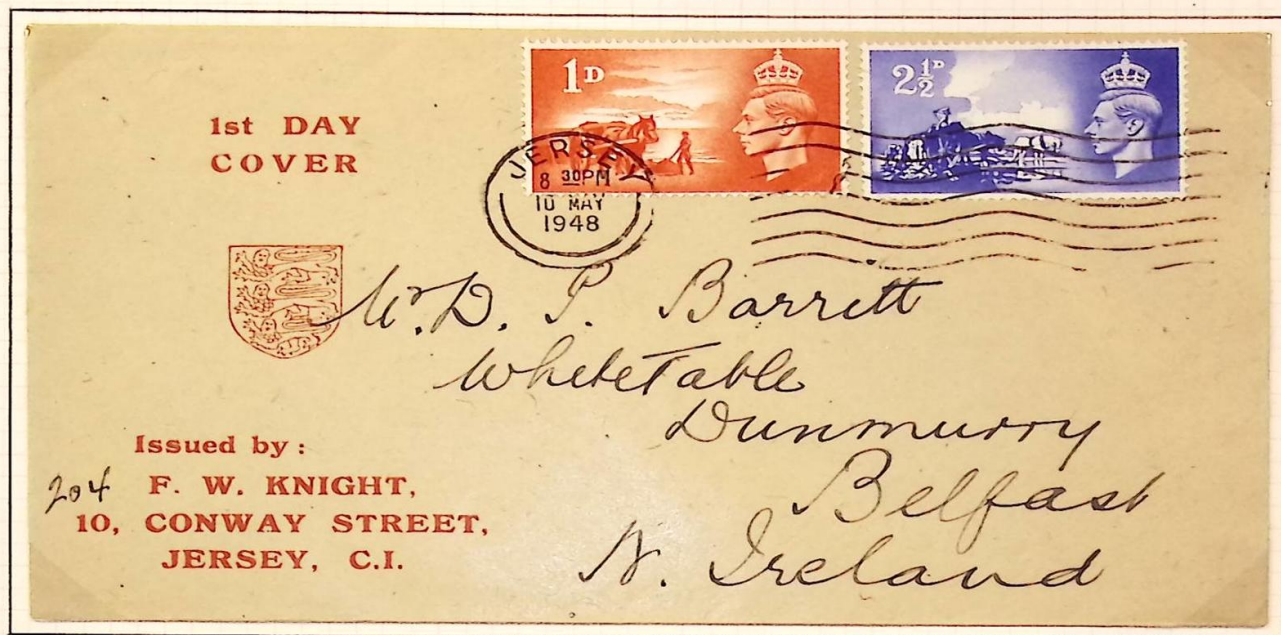 1st DAY
COVER
1D
2½D
JERSEY
8 30PM
10 MAY
1948
Mr. D. P. Barrett
WhiteTable
Dunmurry
Belfast
N. Ireland
Issued by:
204 F. W. KNIGHT,
10, CONWAY STREET,
JERSEY, C.I.